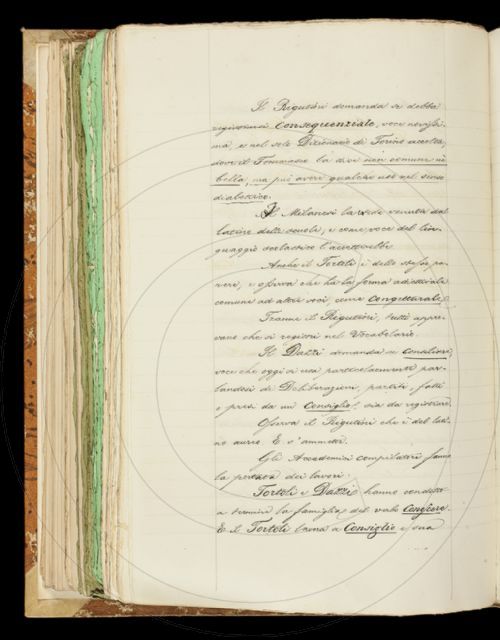 Il Rigutini domanda se debba
registrarsi Consequenziale, voce
ma, e nel solo Dizionario di Torino accolta,
dove il Tommaseo la dice non comune nè
bella, ma può avere qualche uso nel senso
dialettico.
Il Milanesi la vede venuta dal
latino delle scuole, e come voce del lin-
guaggio scolastico l'accetterebbe.
Anche il Tortoli è dello stesso pa-
rere, e osserva che ha la forma addiettivale
comune ad altre voci, come Congetturale.
Tranne il Rigutini, tutti appro-
vano che si registri nel Vocabolario.
Il Dazzi domanda se
voce che oggi si usa particolarmente par-
landosi di Deliberazioni, partiti, fatti
e presi da un Consiglio, sia da registrare.
Osserva il Rigutini che è del lati-
no aureo. E s'ammette.
Gli Accademici compilatori fanno
la portata dei lavori.
Tortoli e Dazzi hanno condotto
a termine la famiglia del verbo
E il Tortoli torna a Consiglio e sua